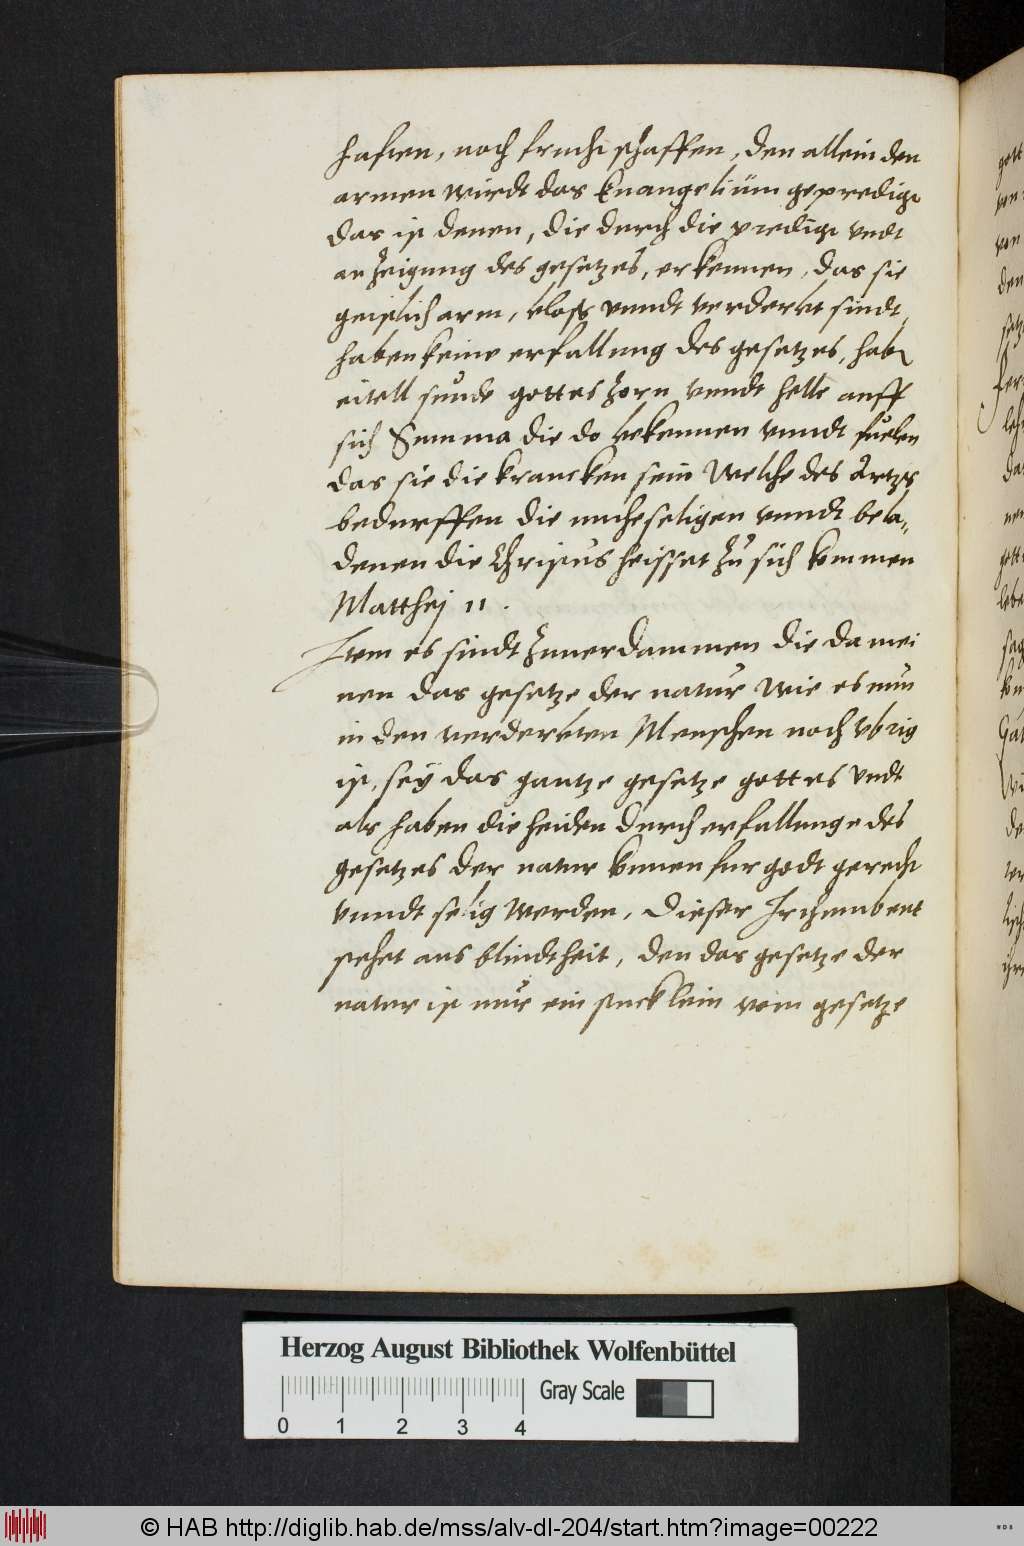 haften, noch frucht schaffen, den allein den
armen wirdt das Euangelium gepredigt
das ist denen, die durch die predigt vndt
anzeigung des gesetzes, erkennen, das sie
geistlich arm, blos vnndt verderbt sindt,
haben keine erfullung des gesetzes, habe
eitell sunde gottes zorn vnndt helle auff
sich Summa die do bekennen vnndt fuelen
das sie die krancken sein welche des Artzts
bedurffen die muheseligen vnndt bela„
denen die Christus heisset zu sich kommen
Matthej 11.
Item es sindt zuuerdammen die da mei
nen das gesetze der natur wie es nun
in den verderbten Menschen noch vbrig
ist, sey das gantze gesetze gottes vndt
als haben die heiden durch erfullunge des
gesetzes der natur konnen fur godt gerecht
vnndt selig werden, dieser
stehet aus blindtheit, den das gesetze der
natur ist nur ein stucklein vom gesetze
Herzog August Bibliothek Wolfenbüttel
0 1 2 3 4 Gray Scale
© HAB http://diglib.hab.de/mss/alv-dl-204/start.htm?image=00222